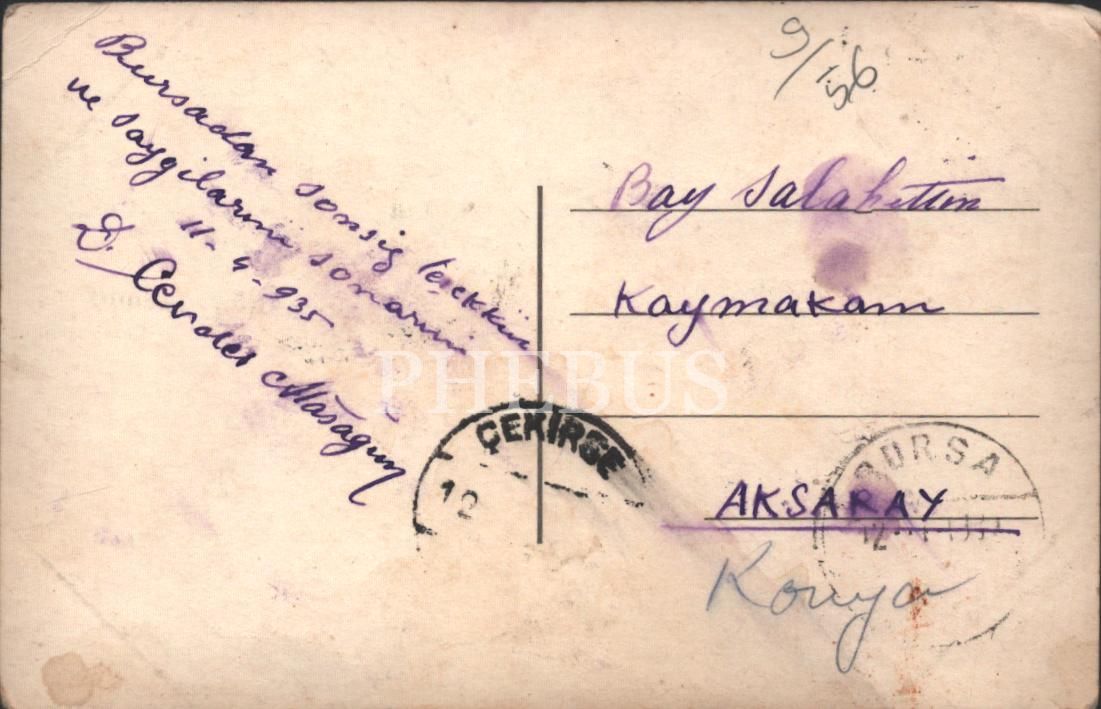 9/56
Bursadan sonsig teşekkür
ve saygilarımı sonarım
11-4-935
D. Cevdet
Bay Salahettin
Kaymakam
AKSARAY
Konya
ÇEKİRGE
12
BURSA
12
PHEBUS